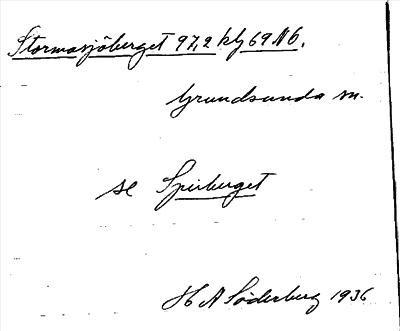 Stormasjöberget 97,2 klj 69 NÖ.
Grundsunda sn.
se Spirberget
H A Söderberg 1936